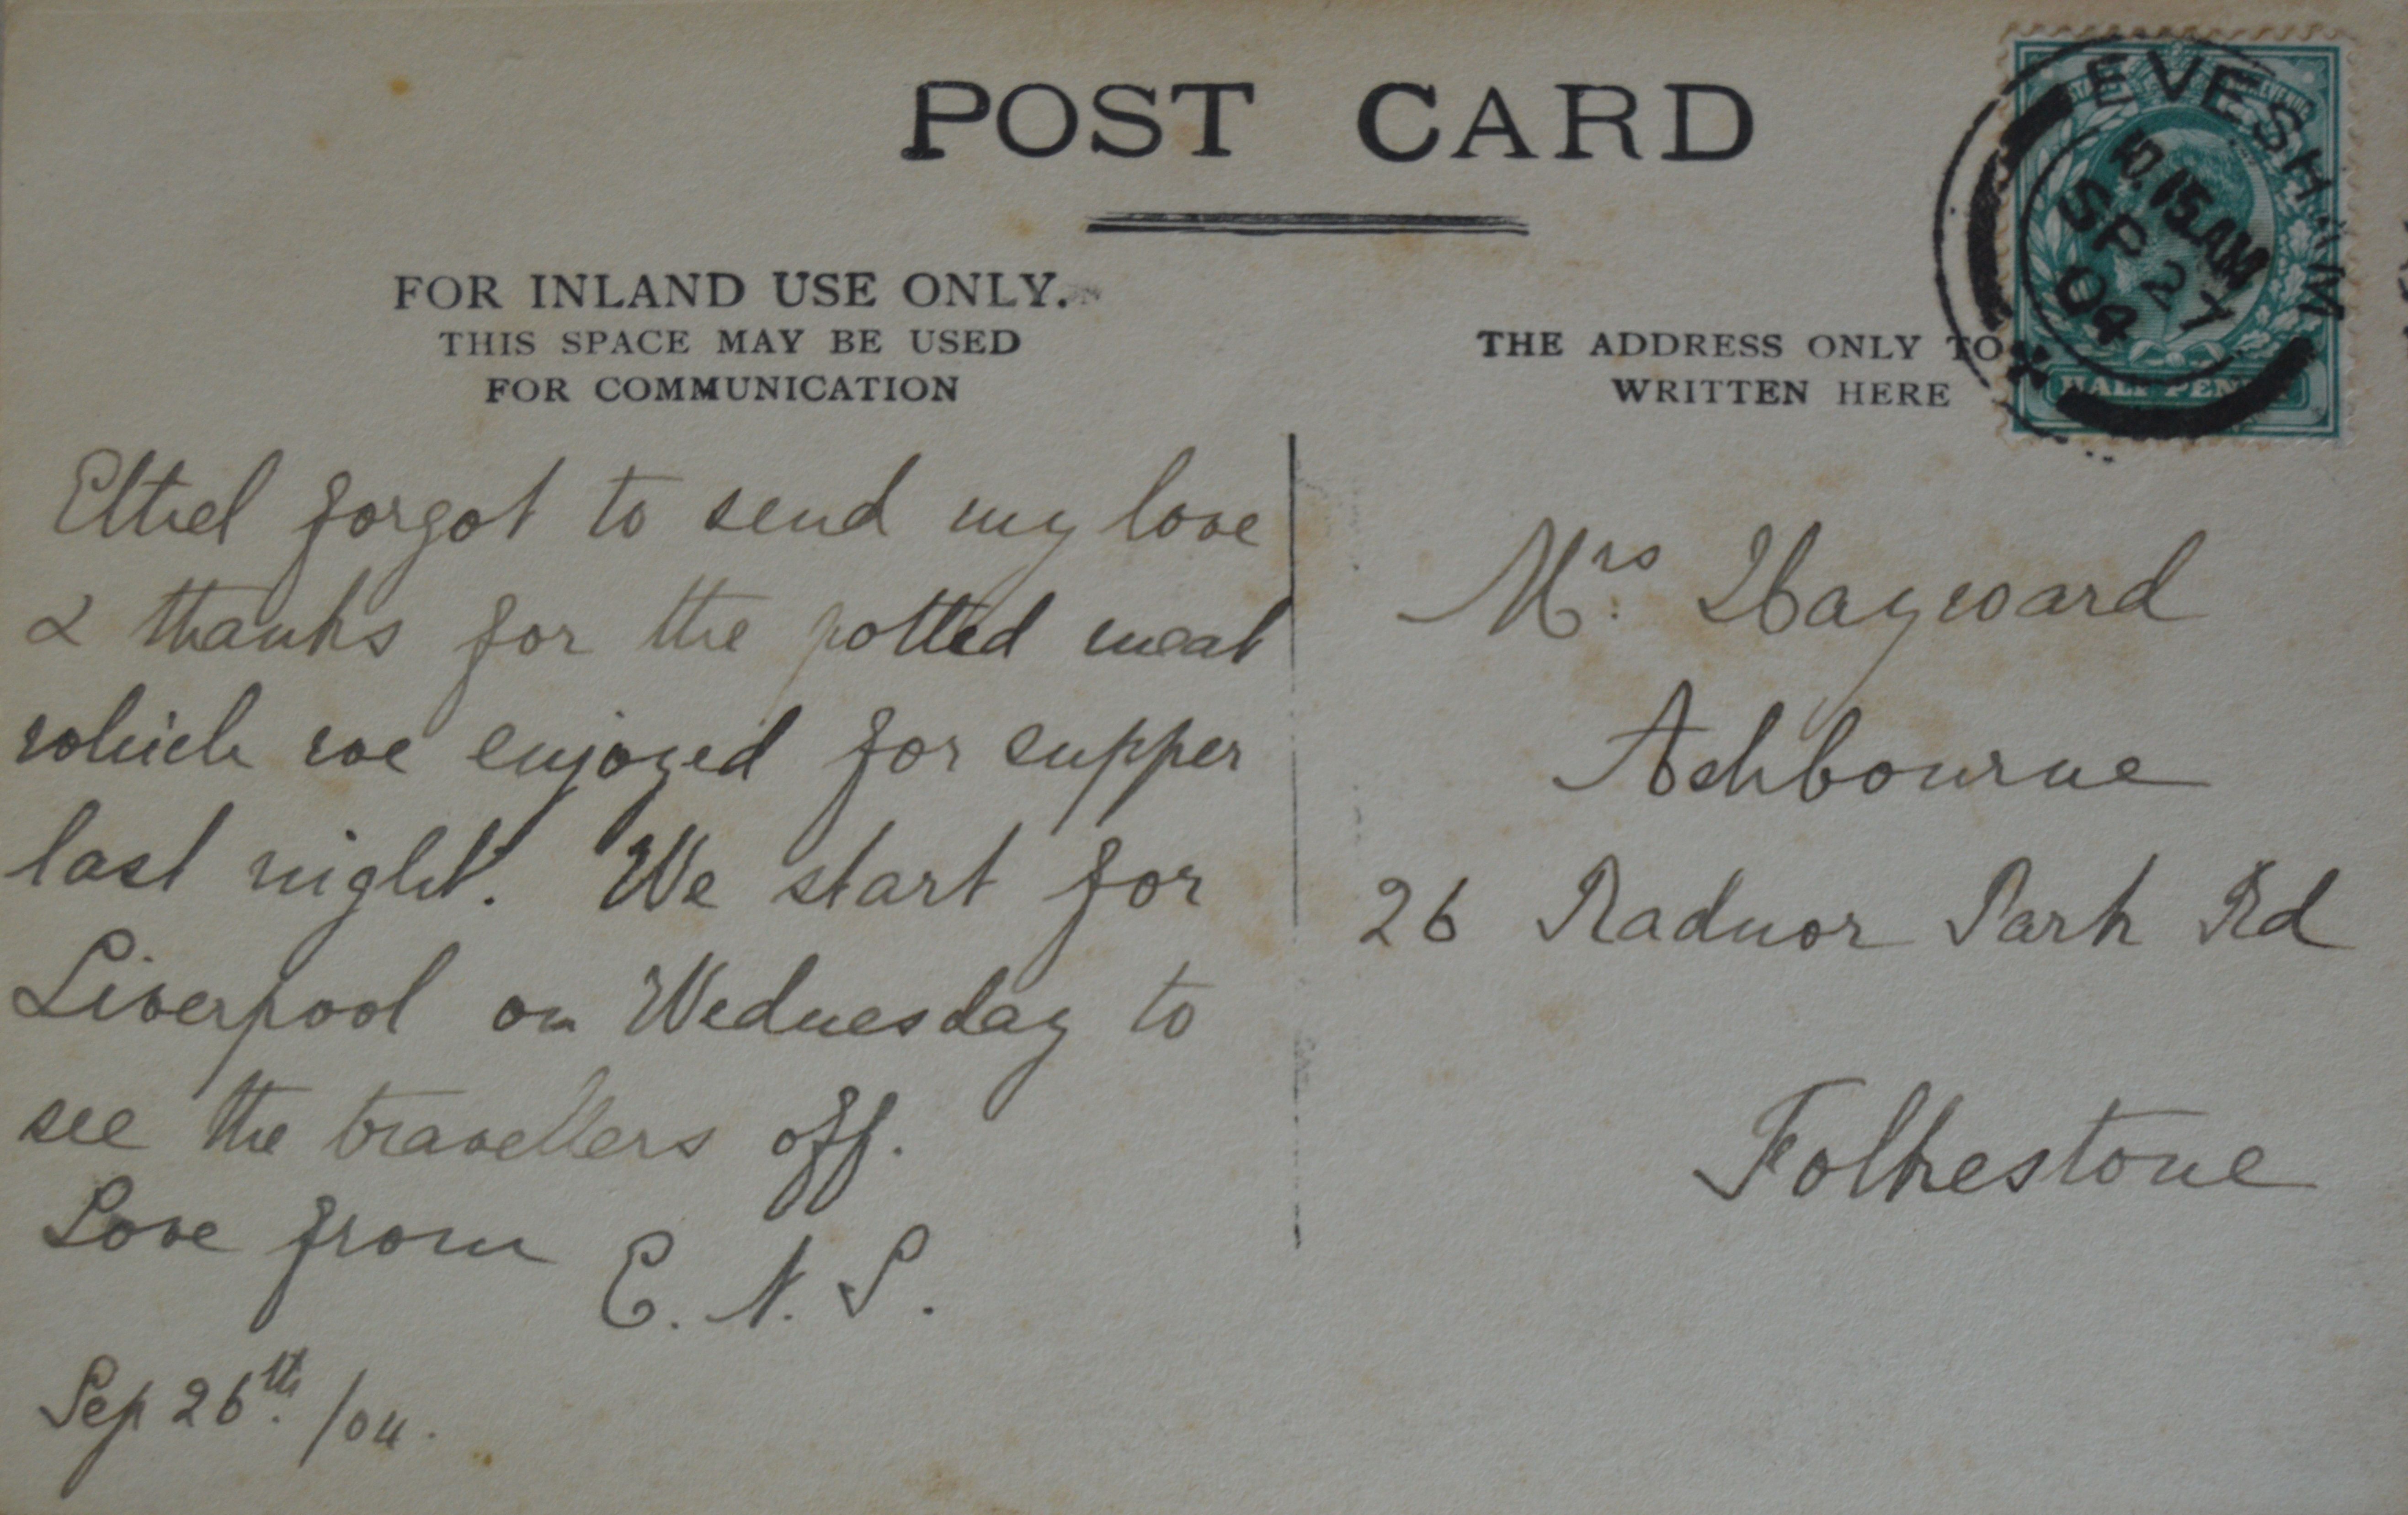 POST CARD
FOR INLAND USE ONLY.
THIS SPACE MAY BE USED
FOR COMMUNICATION
THE ADDRESS ONLY TO
WRITTEN HERE
EVESHAM
10.15AM
SP 27
04
HALF PENNY
Ethel forgot to send my love
& thanks for the potted meat
which we enjoyed for supper
last night. We start for
Liverpool on Wednesday to
see the travellers off.
Love from
E. N. S.
Sep 26th. /04.
Mrs. Hayward
Ashbourne
26 Radnor Park Rd
Folkestone